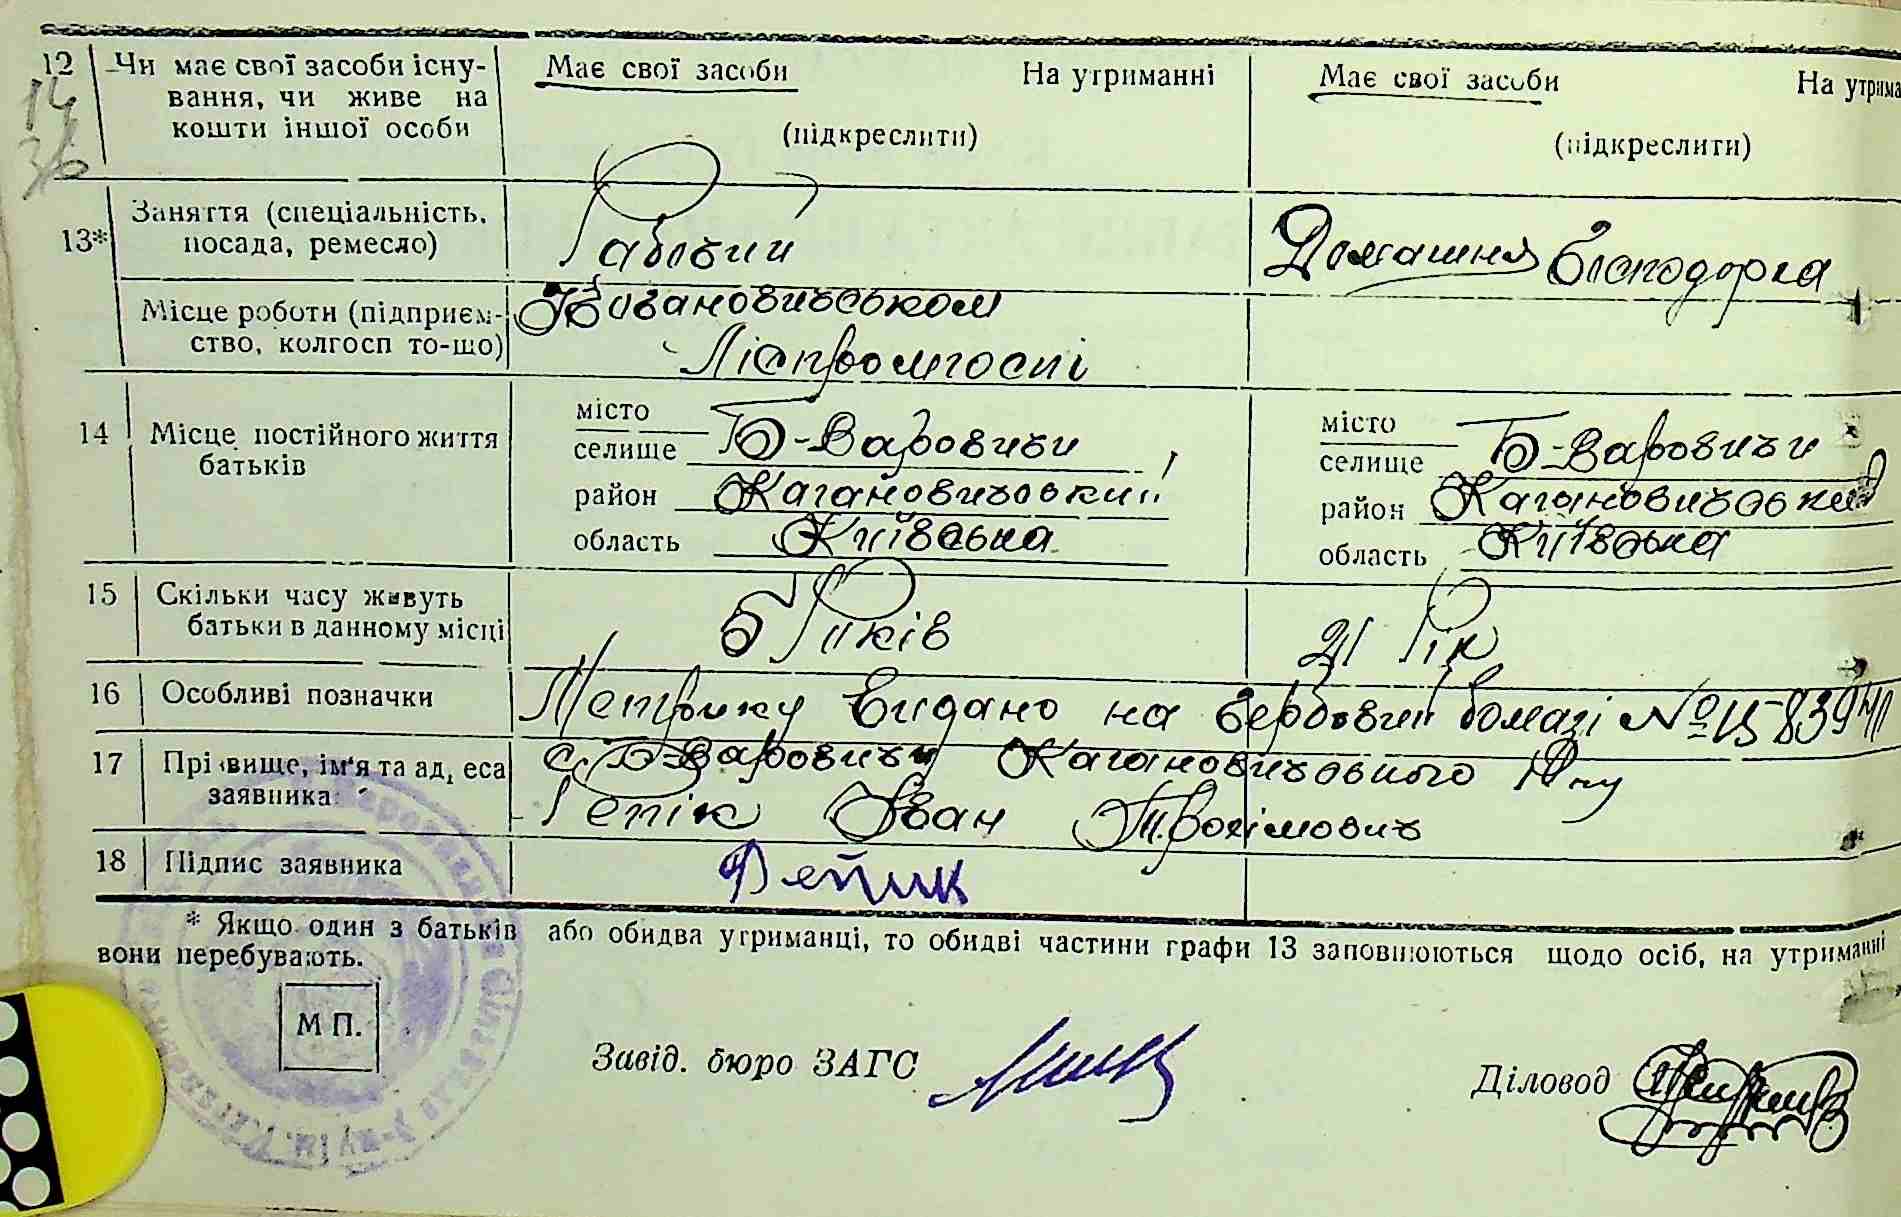 12 Чи має свої засоби існу- Має свої засоби На утриманні Має свої засоби На утрима
14 вання, чи живе на
кошти іншої особи (підкреслити) (підкреслити)
36
13* Заняття (спеціальність, посада, ремесло) Рабочий Домашня Господорка
Місце роботи (підприєм- Кагановичськом
ство, колгосп то-що) Ліспромгоспі
14 Місце постійного життя батьків
місто
селище Б-Варовичи
район Кагановичовкий
область Київська
місто
селище Б-Варовичи
район Кагановичовський
область Київська
15 Скільки часу живуть батьки в данному місці 5 Рików 21 Рік
16 Особливі позначки Метрику Видано на гербовій бомазі № 15839
17 Прізвище, ім'я та адреса с. Б-Варовичи Кагановичовського Р-ну
заявника Репік Іван Трохімович
18 Підпис заявника Репик
* Якщо один з батьків або обидва утриманці, то обидві частини графи 13 заповнюються щодо осіб, на утриманні
вони перебувають.
М П.
Завід. бюро ЗАГС
Діловод